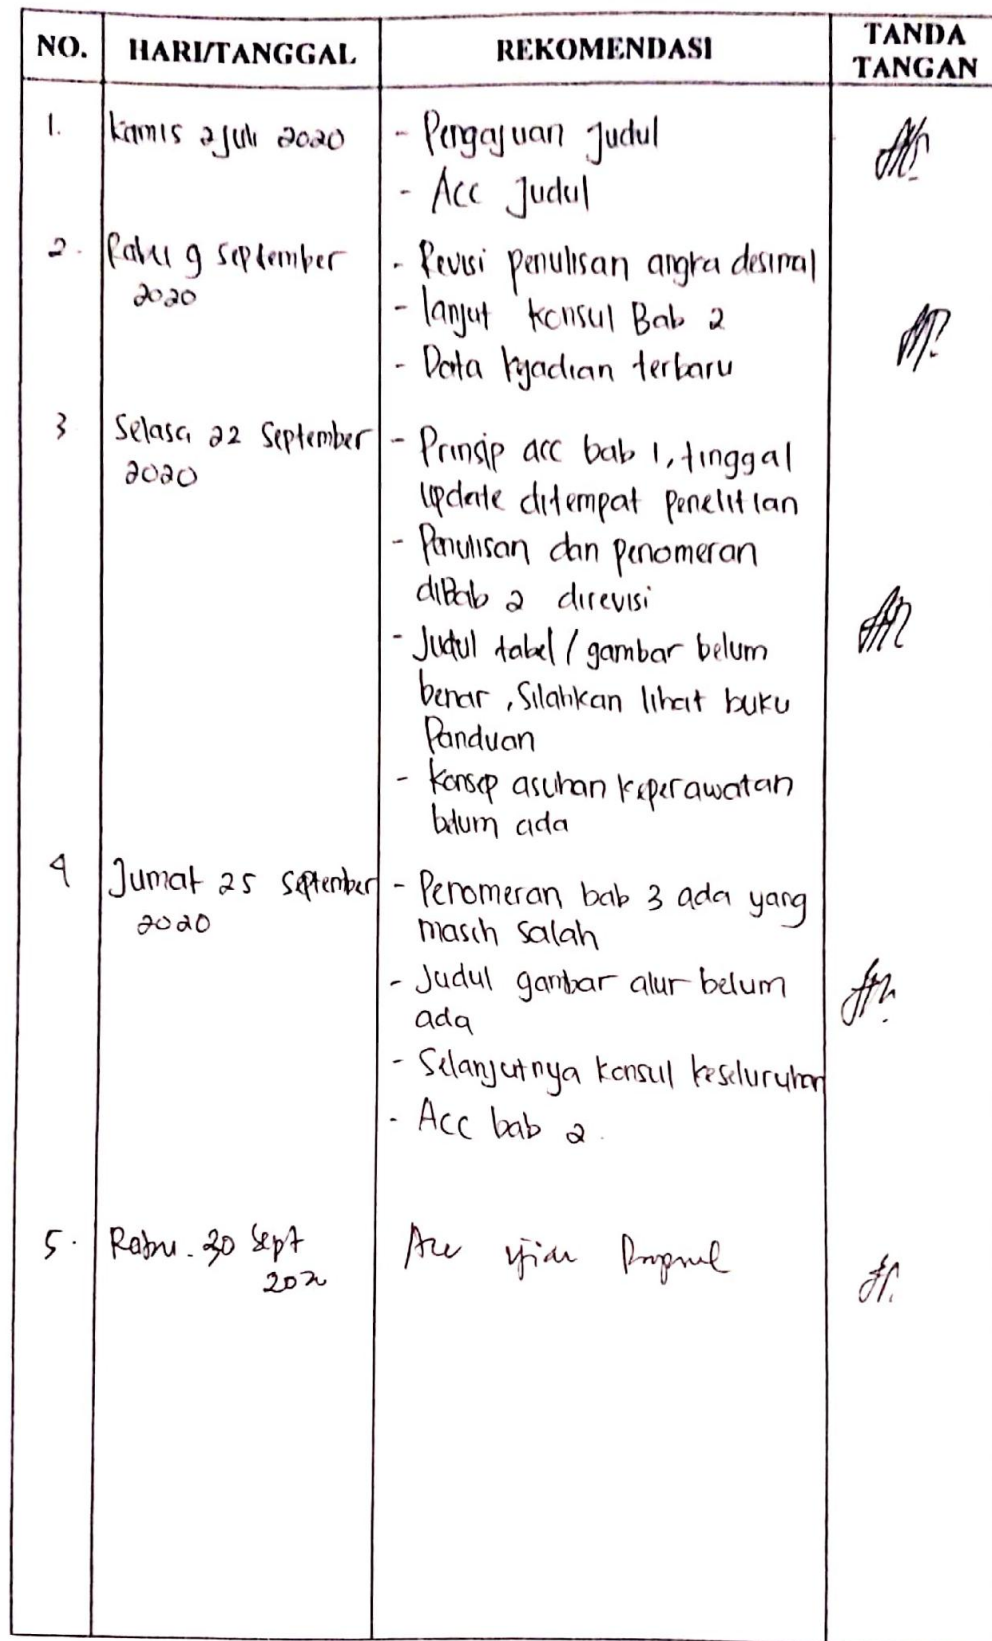 NO. HARI/TANGGAL REKOMENDASI TANDA TANGAN
1. Kamis 2 Juli 2020 - Pengajuan Judul
- Acc Judul
2. Rabu 9 September - Revisi penulisan angka desimal
2020 - lanjut konsul Bab 2
- Data kejadian terbaru
3 Selasa 22 September - Prinsip acc bab 1, tinggal
2020 update ditempat penelitian
- Penulisan dan penomeran
diBab 2 direvisi
- Judul tabel / gambar belum
benar, Silahkan lihat buku
Panduan
- Konsep asuhan keperawatan
belum ada
4 Jumat 25 September - Penomeran bab 3 ada yang
2020 masih salah
- Judul gambar alur belum
ada
- Selanjutnya konsul keseluruhan
- Acc bab 2.
5. Rabu. 30 Sept Acc ujian Proposal
2020